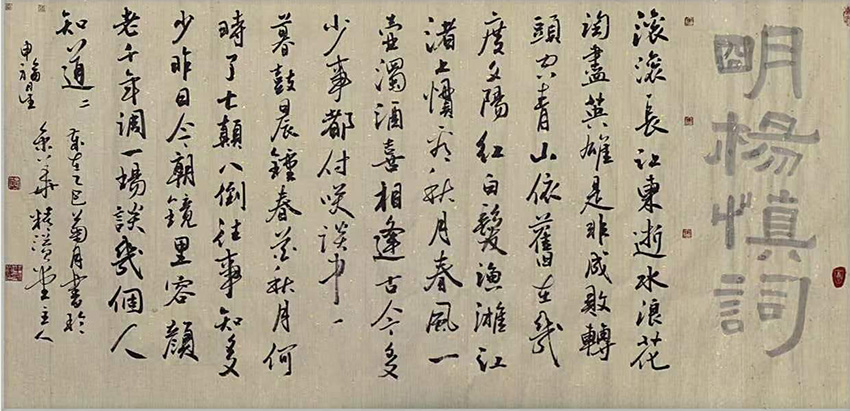 明楊慎詞
滚滚長江東逝水浪花
淘盡英雄是非成敗轉
頭空青山依舊在幾
度夕陽紅白髮漁灘江
渚上慣看秋月春風一
壺濁酒喜相逢古今多
少事都付咲談中一
暮鼓晨鐘春花秋月何
時了七顛八倒往事知多
少昨日今朝鏡里容顏
老千年調一場談幾個人
知道二
歲在乙巳菊月書於
堂主人
申福星